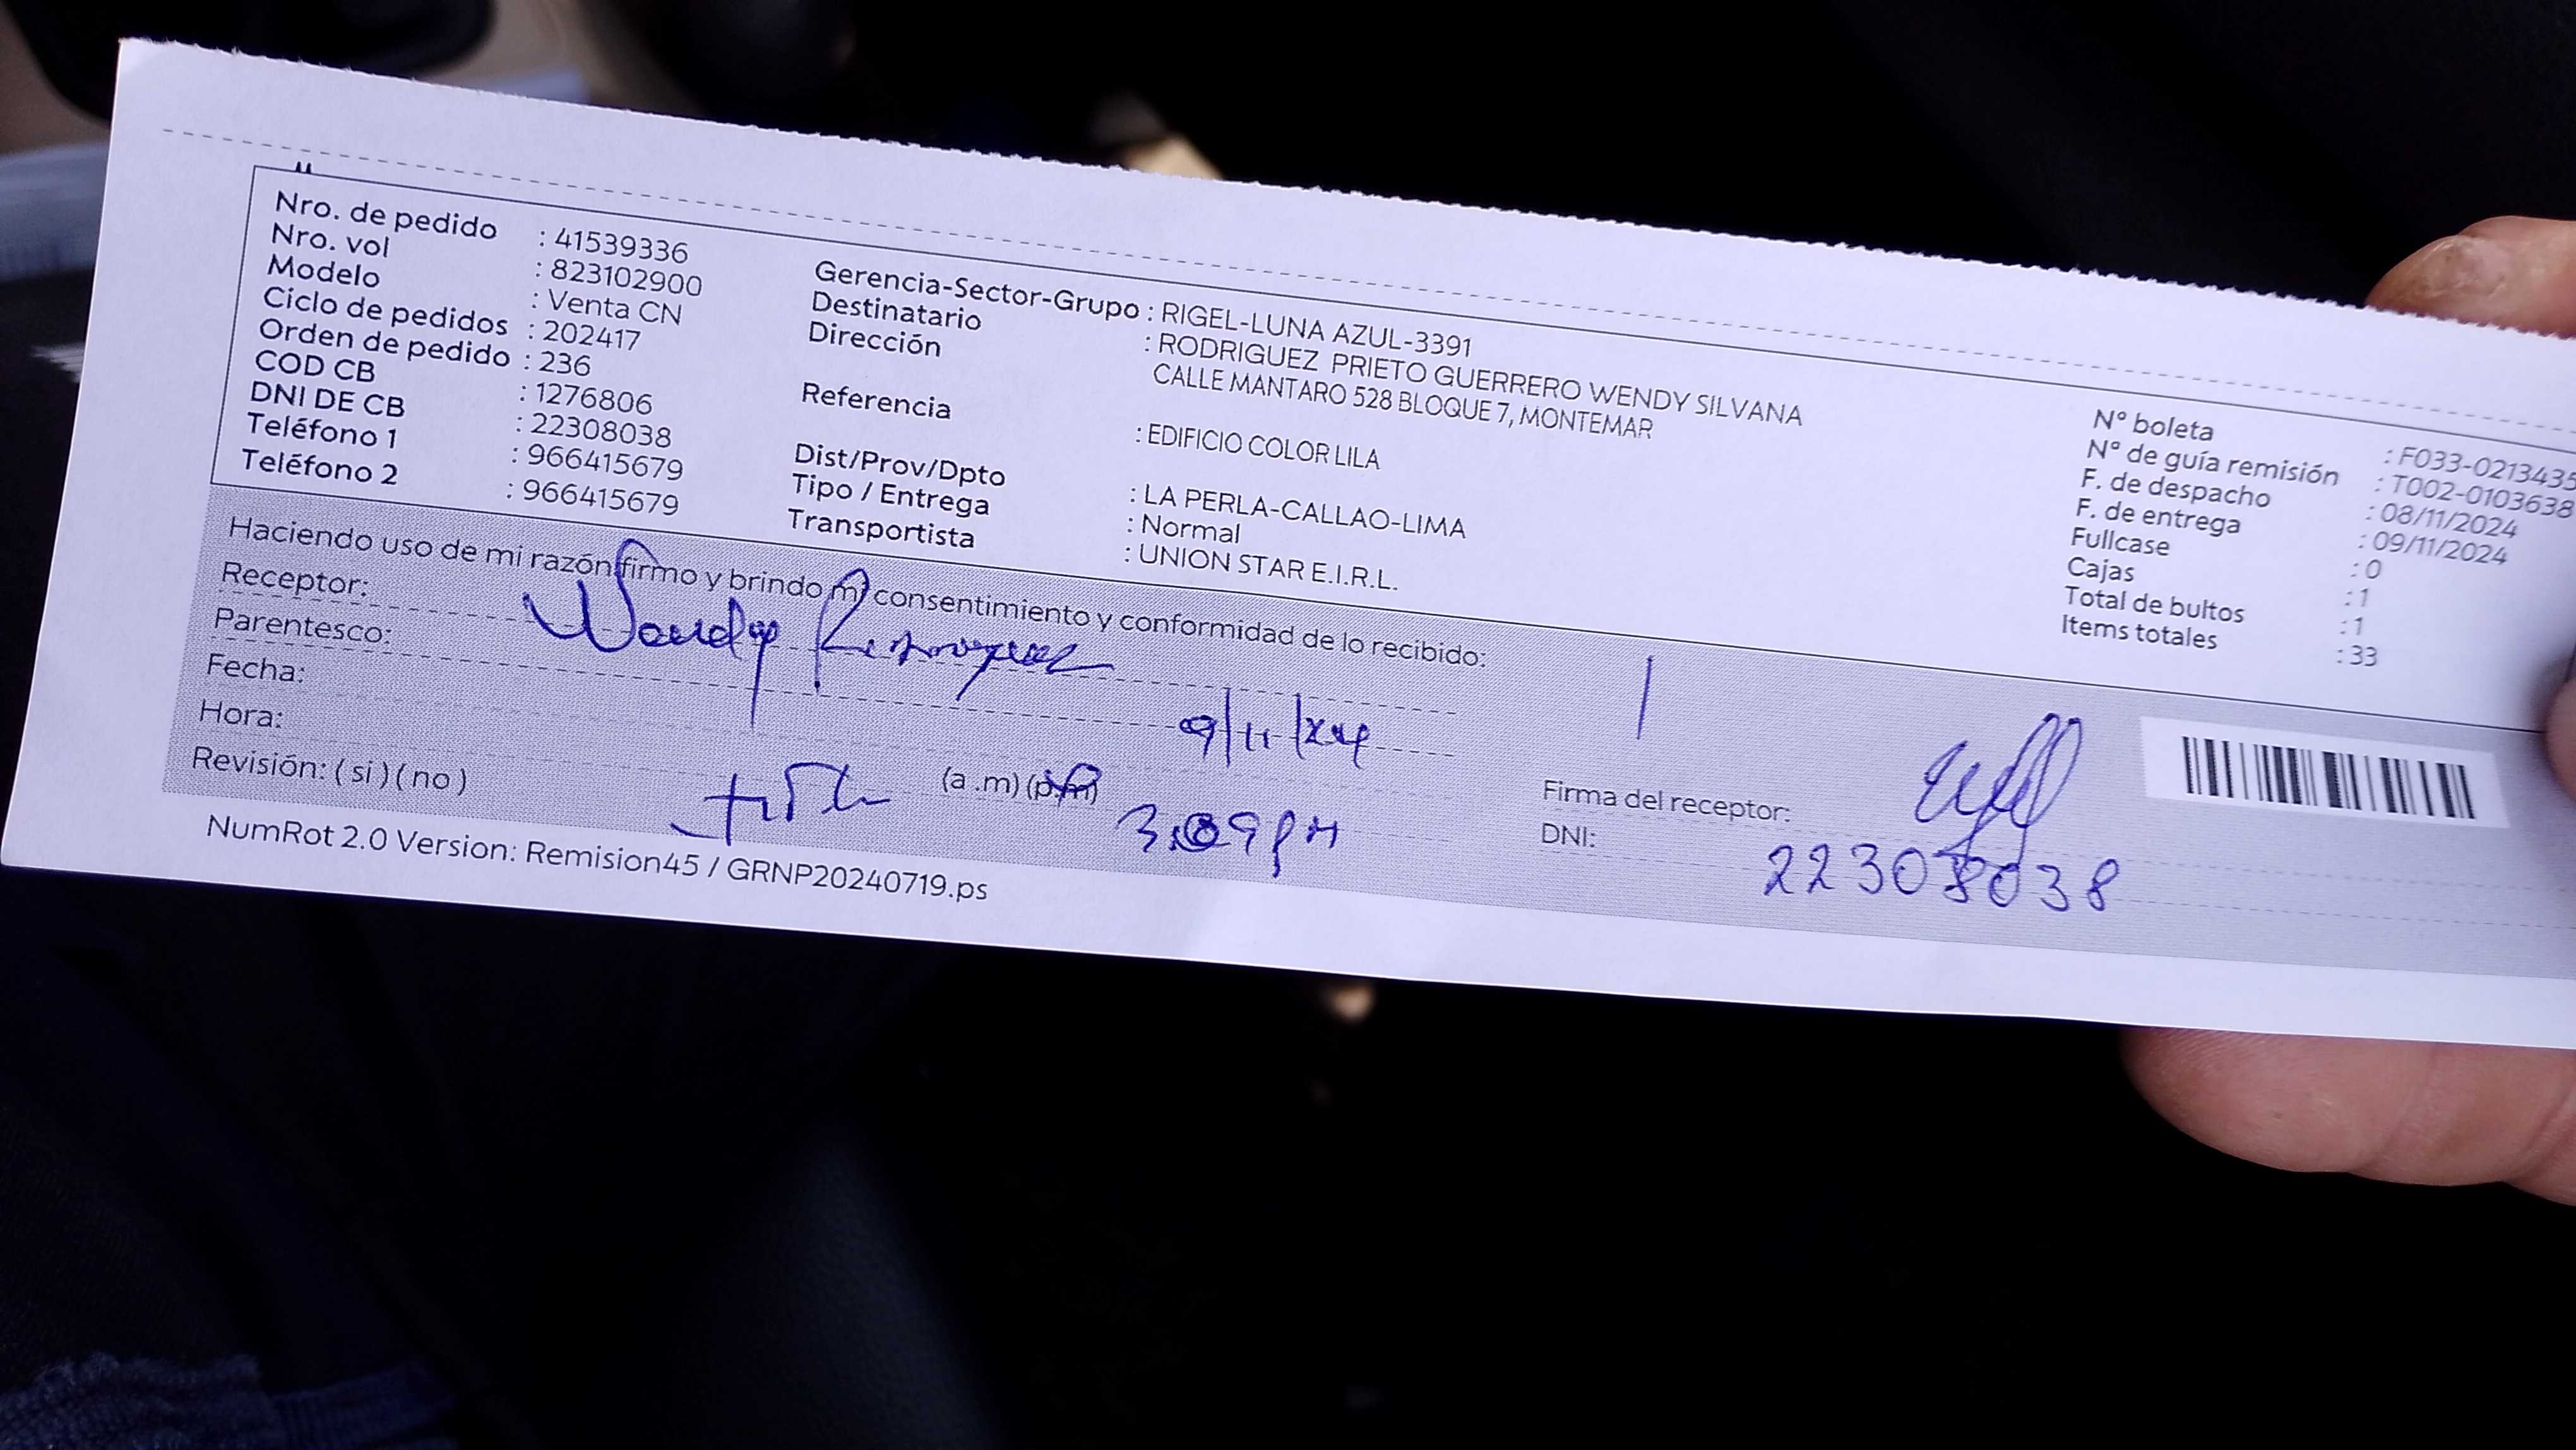 Nro. de pedido : 41539336
Nro. vol : 823102900
Modelo : Venta CN
Ciclo de pedidos : 202417
Orden de pedido : 236
COD CB : 1276806
DNI DE CB : 22308038
Teléfono 1 : 966415679
Teléfono 2 : 966415679
Gerencia-Sector-Grupo : RIGEL-LUNA AZUL-3391
Destinatario : RODRIGUEZ PRIETO GUERRERO WENDY SILVANA
Dirección CALLE MANTARO 528 BLOQUE 7, MONTEMAR
Referencia : EDIFICIO COLOR LILA
Dist/Prov/Dpto : LA PERLA-CALLAO-LIMA
Tipo / Entrega : Normal
Transportista : UNION STAR E.I.R.L.
N° boleta : F033-0213435
N° de guía remisión : T002-0103638
F. de despacho : 08/11/2024
F. de entrega : 09/11/2024
Fullcase : 0
Cajas : 1
Total de bultos : 1
Items totales : 33
Haciendo uso de mi razón firmo y brindo mi consentimiento y conformidad de lo recibido:
Receptor: Wendy
Parentesco:
Fecha: 9/11/24
Hora: (a .m) (p.m) 3:09 PM
Revisión: ( si ) ( no )
Firma del receptor:
DNI: 22308038
NumRot 2.0 Version: Remision45 / GRNP20240719.ps